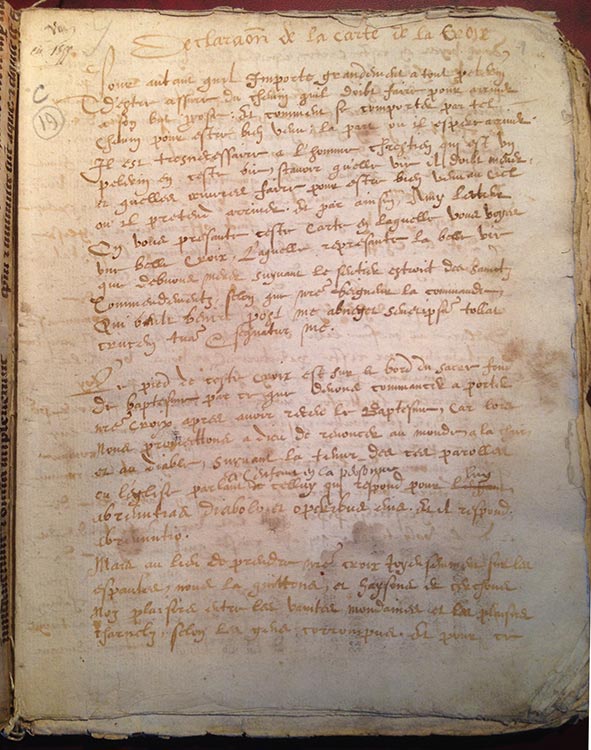 Declaraon de la carte de la Croix
C
19
Pour autant quil Importe grandement a tout pelerin
d'estre asseuré du chemin quil doibt fairé pour arriuer
a son but proposé. Et comment se comporter par tel
chemin pour estre bien venu la part ou il espere arriuer.
Il est tresnecessaire a l'homme chrestien qui est un
pelerin en ceste vie, scauoir quelle vie il doibt mener
et quelles œuures faire pour estre bien venu au ciel
ou il pretend arriuer. Et par ainsin Amy lecteur
On vous presante ceste carte en laquelle vous voyes
une belle Croix. Laquelle represante la belle vie
que debuons mener suyuant le sentier estroit des saincts
Commendements selon que nre seigneur la commande,
Qui vult venire post me abneget semetipsu tollat
crucem sua & sequatur me.
Le pied de ceste croix est sur le bord du sacré fons
de baptesme par ce que deuons commancer a porter
nre croix apres auoir receu le Baptesme, Car lors
Nous promettons a dieu de renoncer au monde, a la chair
et au diable, suyuant la teneur des ces parolles
a l'enfant en la personne
en l'eglise parlant de celluy qui respond pour luy
abrenuncias diabolo et operibus eius. & il respond.
abrenuntio.
Mais au lieu de prendre nre croix Joyeusement sur les
espaules, nous la quittons, et haysons et cerchons
Noz plaisirs entre les vanites mondaines et les plaisirs
charnels, selon les gens corrompus. Et pour ce